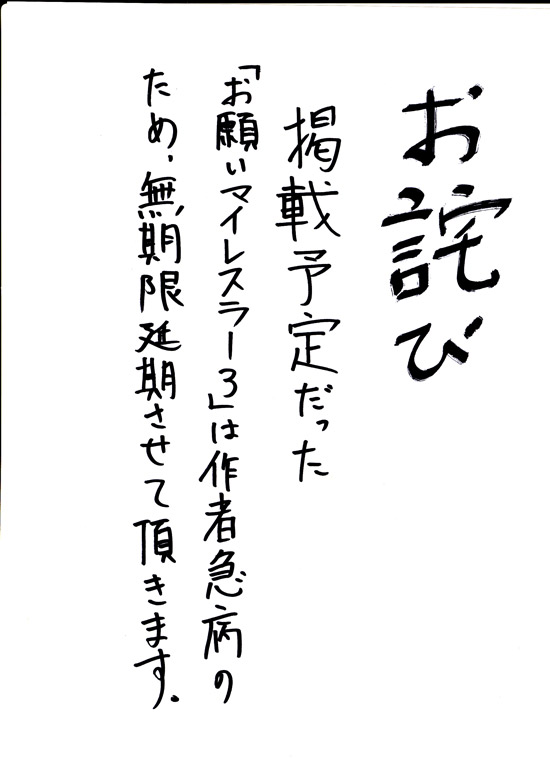 お詫び
掲載予定だった
「お願いマイレスラー3」は作者急病の
ため、無期限延期させて頂きます。